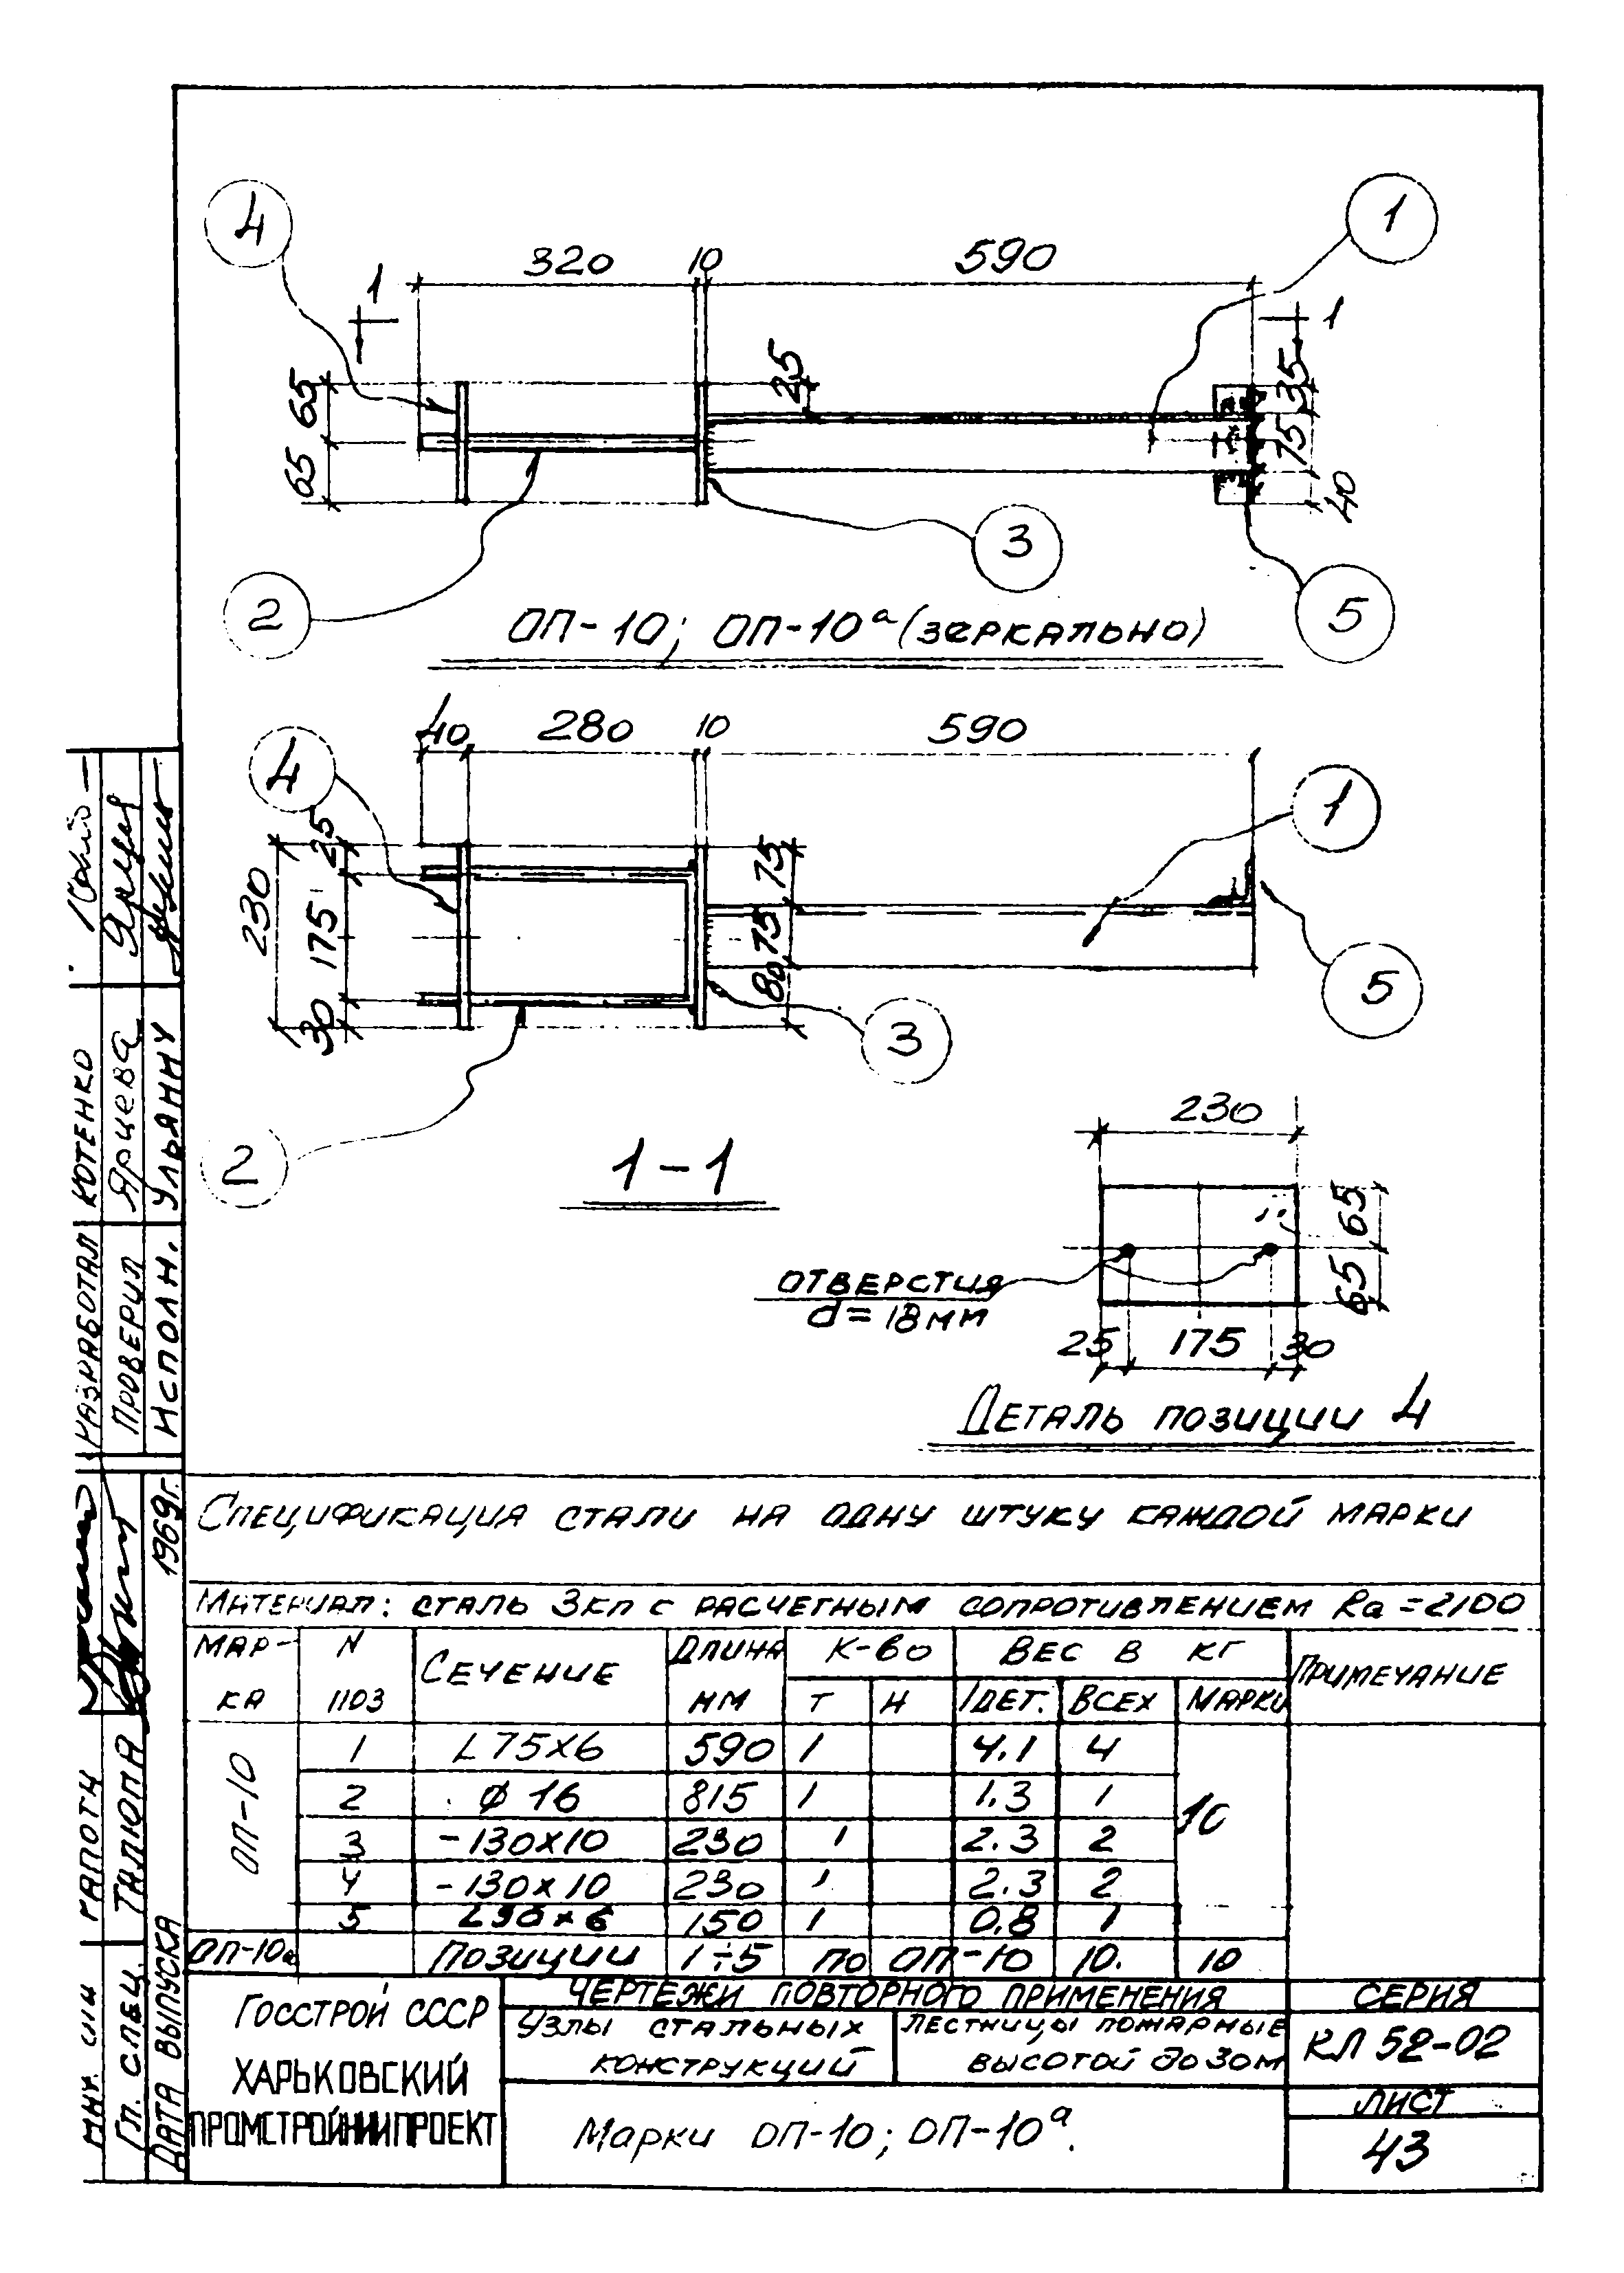 4
1
320
10
590
1
1
65
65
25
35
75
40
2
3
5
ОП-10; ОП-10а (зеркально)
40
280
10
590
4
1
230
25
175
30
75
75
80
3
5
2
1-1
230
65
65
отверстия
d=18мм
25
175
30
Деталь позиции 4
Спецификация стали на одну штуку каждой марки
Материал: сталь 3кп с расчетным сопротивлением Ra=2100
Мар-ка
N поз
Сечение
Длина мм
К-во
т
н
Вес в кг
1дет.
Всех
Марки
Примечание
ОП-10
1 L 75х6 590 1 4.1 4
2 ø 16 815 1 1.3 1
3 -130х10 230 1 2.3 2
4 -130х10 230 1 2.3 2
5 L90х6 150 1 0.8 1
10
ОП-10а Позиции 1÷5 по ОП-10 10. 10
Госстрой СССР
ХАРЬКОВСКИЙ
ПРОМСТРОЙНИИПРОЕКТ
Чертежи повторного применения
Узлы стальных
конструкций
Лестницы пожарные
высотой до 30м
Марки ОП-10; ОП-10а.
СЕРИЯ
КЛ 52-02
ЛИСТ
43
Разработал Котенко
Проверил Ярцева
Исполн.
Гл. спец.
Дата выпуска 1969г.